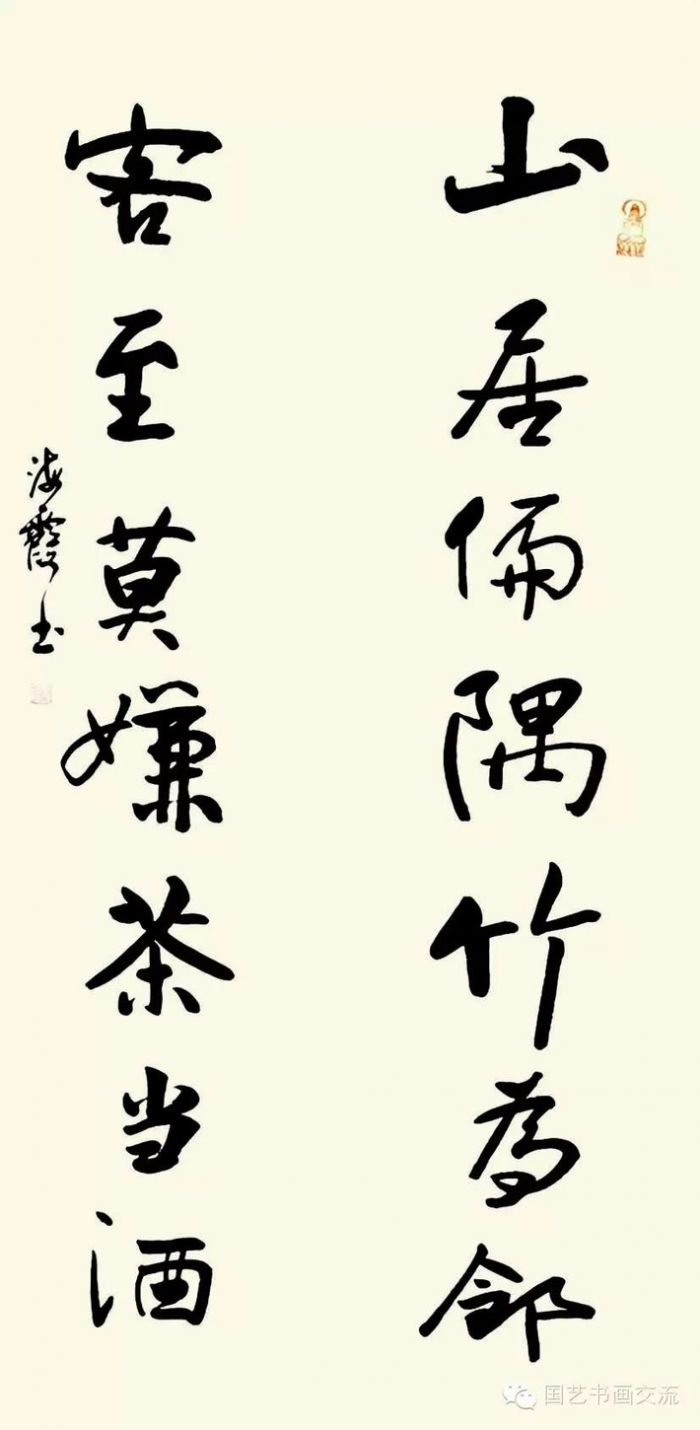 山居偏隅竹為邻
客至莫嫌茶当酒
海霞书
国艺书画交流